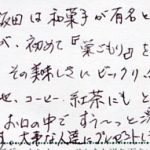 飯田は和菓子が有名と
が、初めて『巣ごもり』を
その美味しさにビックリ
せ、コーヒー・紅茶にもと
お口の中ですう〜っと
す。大事な人達にプレゼントし